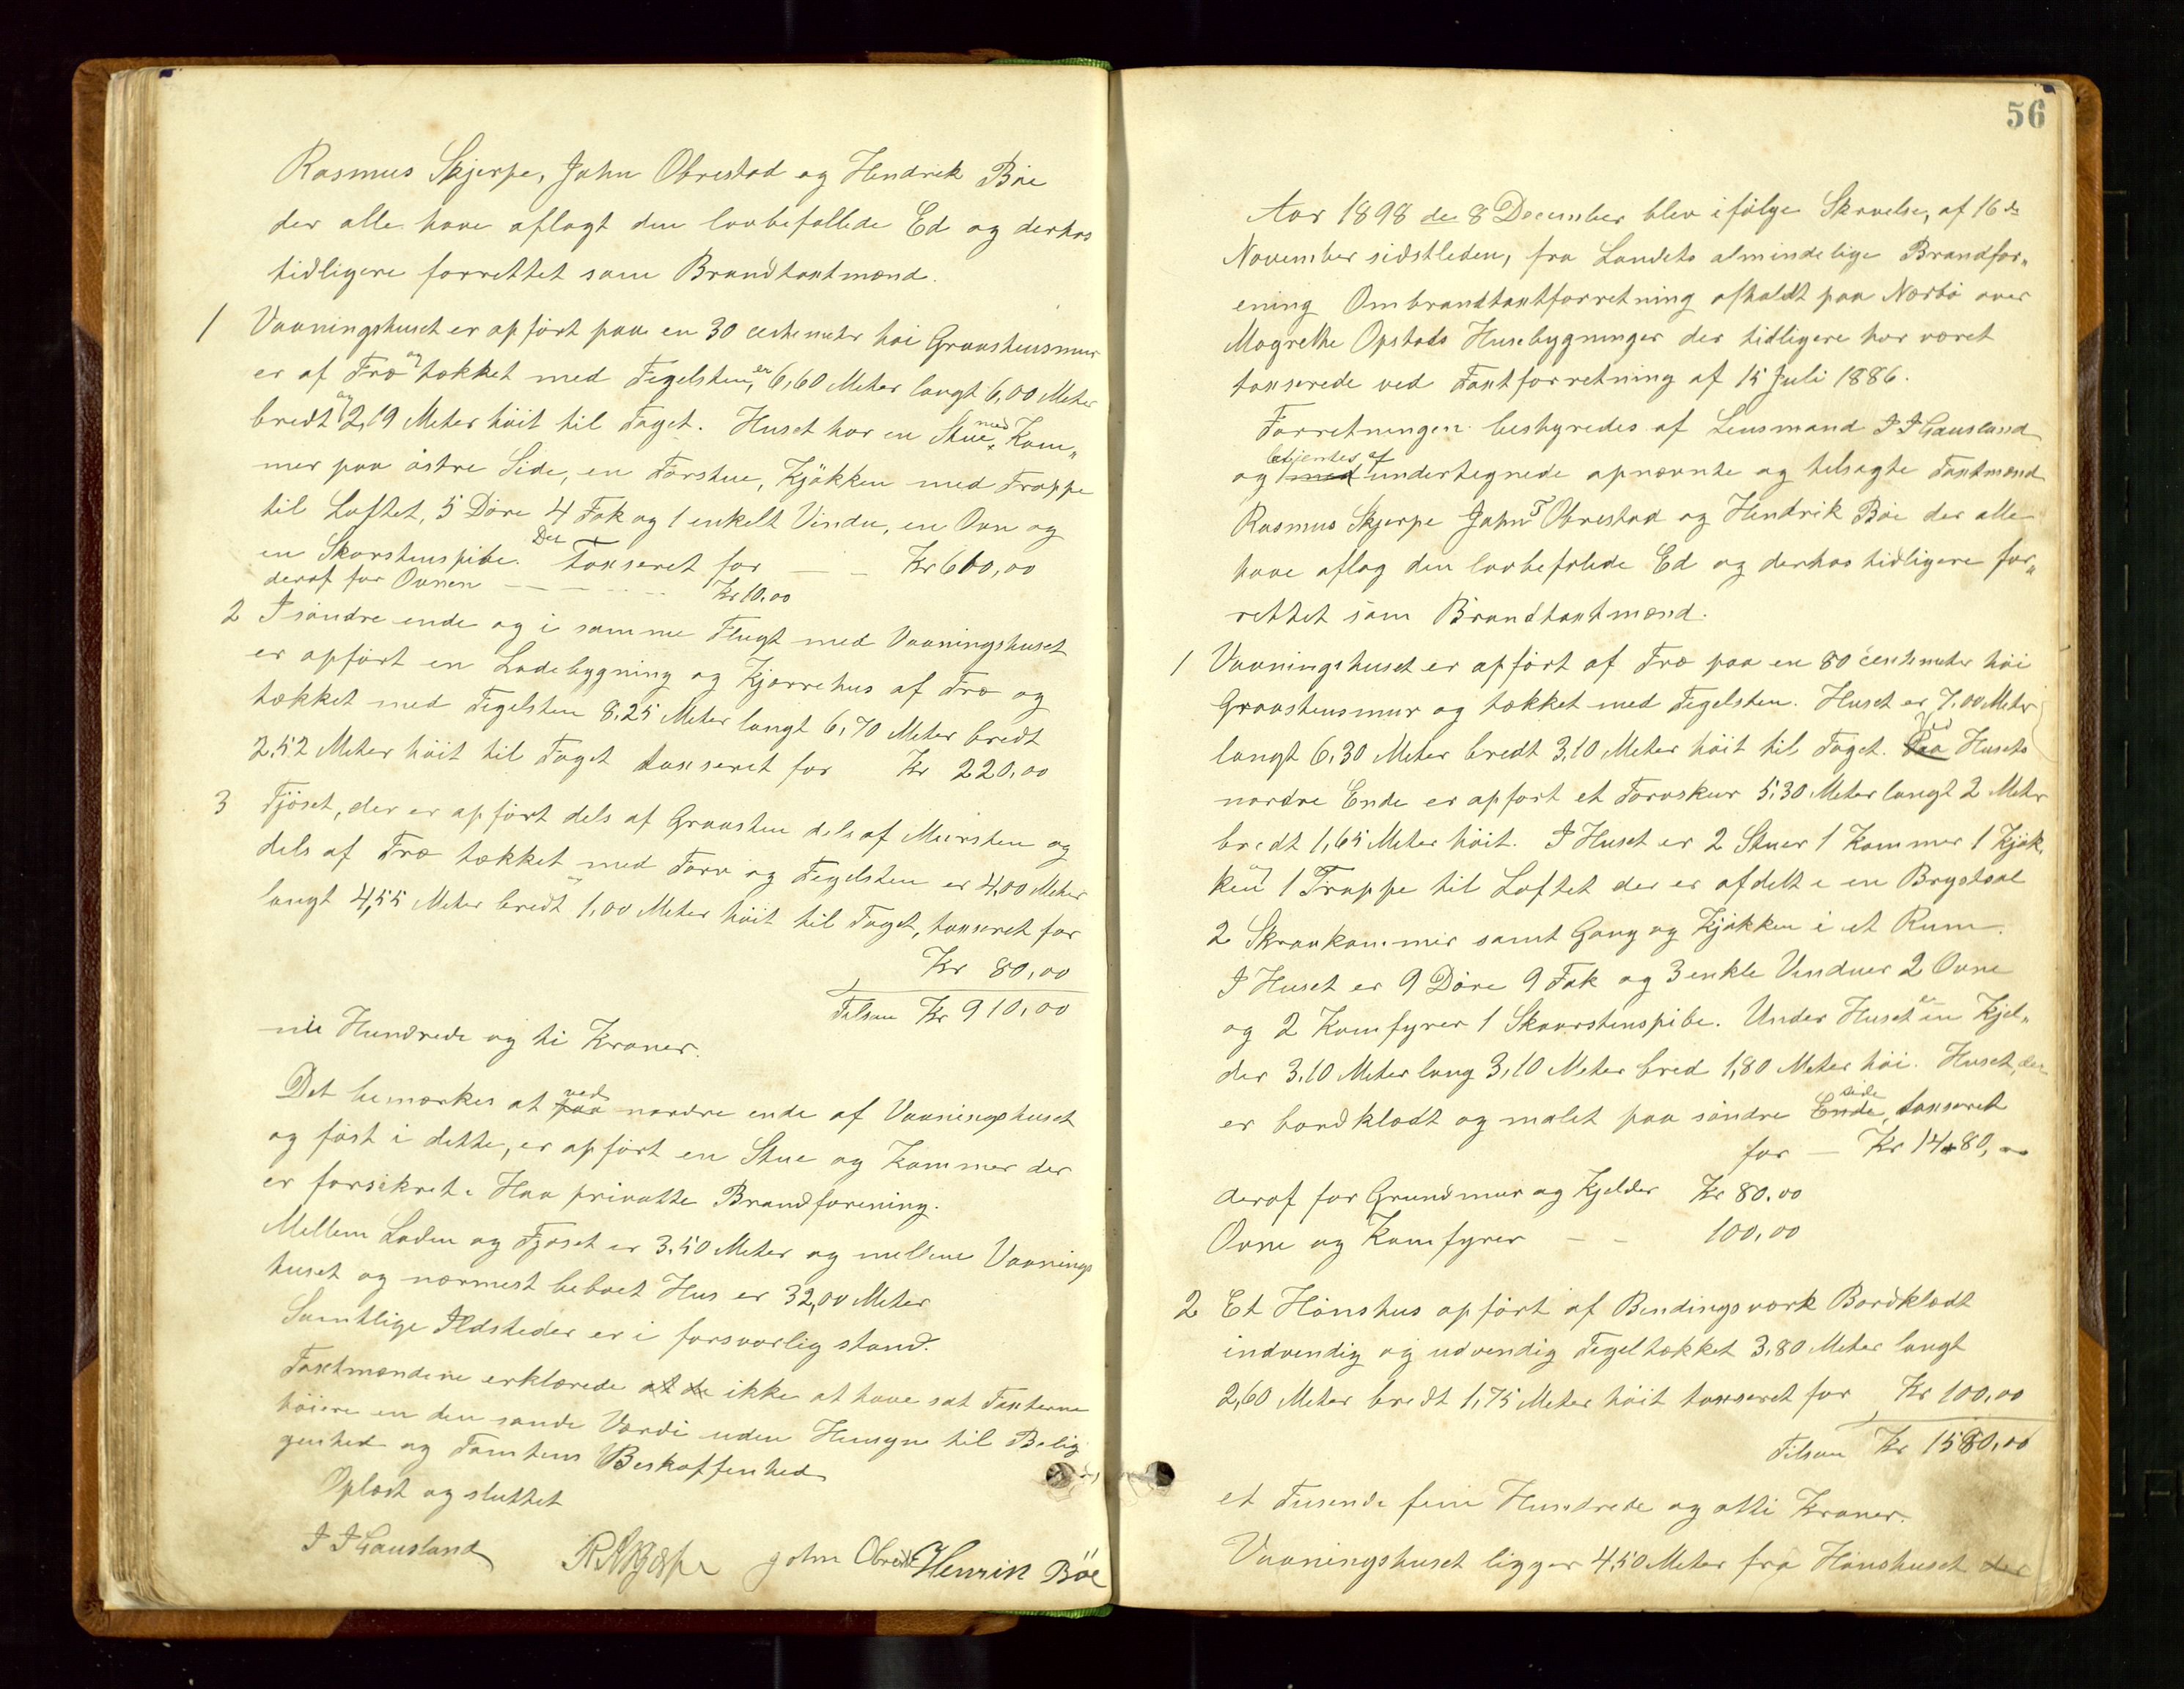 Rasmus Skjerpe, John Obrestad og Hendrik Böe
der alle have aflagt den lovbefallede Ed og derhos
tidligere forrettet som Brandtaxtmænd.
1 Vaaningshuset er opfört paa en 30 centemeter höi Graastensmur
er af Træ og tækket med Tegelsten, er 6,60 Meter langt 6,00 Meter
bredt og 2,19 Meter höit til Taget. Huset har en Stue med Kam„
mer paa östre Side, en Forstue, Kjökken med Trappe
til Loftet, 5 Döre 4 Fak og 1 enkelt Vindu, en Ovn og
en Skorstenspibe. Det Taxseret for — — Kr 610,00
deraf for Ovnen — — — Kr 10.00
2 I söndre ende og i samme Flugt med Vaaningshuset
er opfört en Ladebygning og Kjærrehus af Træ og
tækket med Tegelsten 8,25 Meter langt 6,70 Meter bredt
2,52 Meter höit til Taget taxseret for Kr 220,00
3 Fjöset, der er opfört dels af Graasten dels af Mursten og
dels af Træ tækket med Torv og Tegelsten er 4,00 Meter
langt 4,55 Meter bredt 1,00 Meter höit til Taget, taxseret for
Kr 80,00
Tilsam Kr 910,00
nie Hundrede og ti Kroner.
Det bemærkes at paa ved nordre ende af Vaaningshuset
og föst i dette, er opfört en Stue og Kammer der
er forsikret i Haa privatte Brandforening.
Mellem Laden og Fjöset er 3,50 Meter og mellem Vaanings
huset og nærmest beboet Hus er 32,00 Meter
Samtlige Ildsteder er i forsvarlig stand.
Taxtmændene erklærede at de ikke at have sat Taxterne
höiere en den sande Værdi uden Hensyn til Belig
genhed og Tomtens Beskaffenhed
Oplæst og sluttet
I I Gausland R Skjerpe John Obrestad Henrik Böe
56
Aar 1898 den 8 December blev ifölge Skrivelse, af 16de
November sidstleden, fra Landets almindelige Brandfor„
ening Ombrandtaxtforretning afholdt paa Nærbö over
Magrethe Opstads Husebygninger der tidligere har været
taxserede ved Taxtforretning af 15 Juli 1886.
Forretningen bestyredes af Lensmand I I Gausland
og med betjentes af undertegnede opnævnte og tilsagte Taxtmænd
Rasmus Skjerpe John T Obrestad og Hendrik Böe der alle
have aflag den lovbefalede Ed og derhos tidligere for„
rettet som Brandtaxtmænd.
1 Vaaningshuset er opfört af Træ paa en 80 centemeter höi
Graastensmur og tækket med Tegelsten. Huset er 7,00 Meter
langt 6,30 Meter bredt 3,10 Meter höit til Taget. Paa Ved Husets
nordre Ende er opfört et Torvskur 5,30 Meter langt 2 Meter
bredt 1,65 Meter höit. I Huset er 2 Stuer 1 Kammer 1 Kjök„
ken og 1 Trappe til Loftet der er afdelt i en Brystsal
2 Skraakammer samt Gang og Kjökken i et Rum.
I Huset er 9 Döre 9 Fak og 3 enkle Vinduer 2 Ovne
og 2 Komfyrer 1 Skaarstenspibe. Under Huset er en Kjel„
der 3,10 Meter lang 3,10 Meter bred 1,80 Meter höi. Huset, der
er bordklædt og malet paa söndre Ende side, taxseret
for — Kr 1480,00
deraf for Grundmur og Kjelder Kr 80.00
Ovne og Komfyrer — — 100,00
2 Et Hönshus opfört af Bindingsværk Bordklædt
indvendig og udvendig Tegeltækket 3,80 Meter langt
2,60 Meter bredt 1,75 Meter höit taxseret for Kr 100,00
Tilsam Kr 1580,00
et Tusende fem Hundrede og otti Kroner.
Vaaningshuset ligger 4,50 Meter fra Hönshuset der